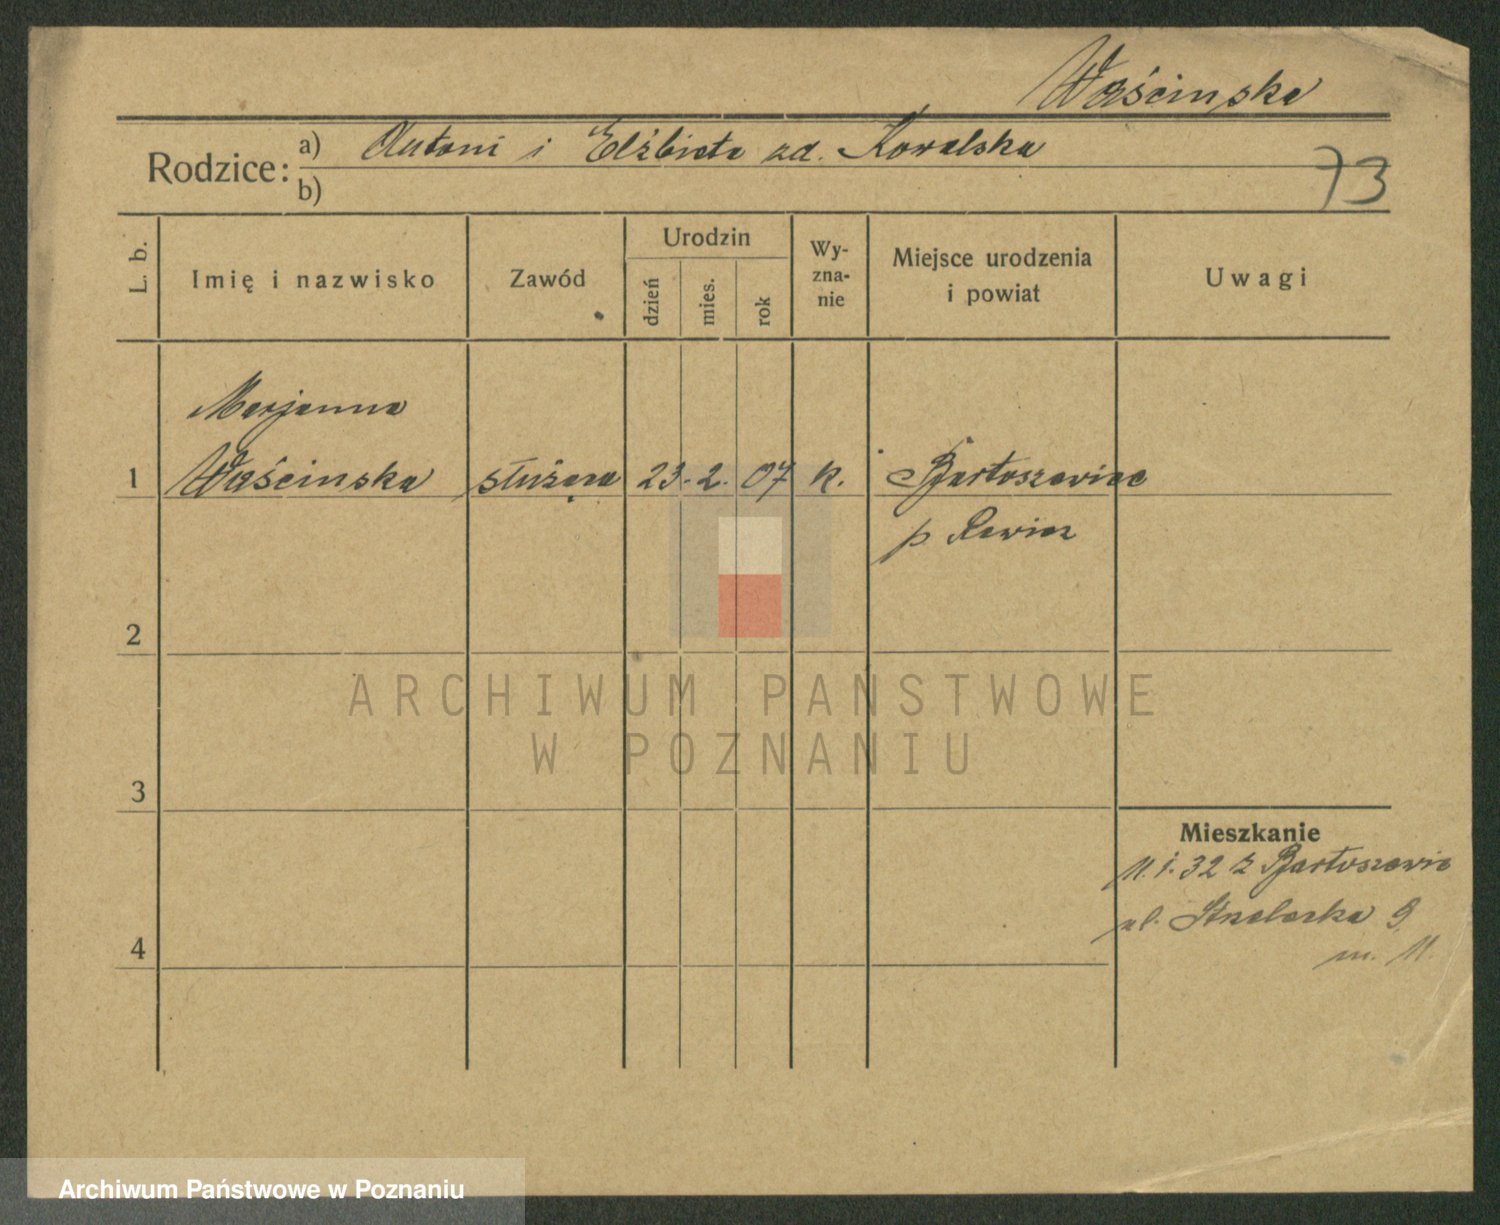 Waścinska
Rodzice: a) Antoni i Elżbieta zd. Kowalska
b)
73
L. b.
Imię i nazwisko
Zawód
Urodzin
dzień
mies.
rok
Wy-
zna-
nie
Miejsce urodzenia
i powiat
Uwagi
Marjanna
1 Waścinska służąca 23. 2. 07 k. Bartoszewice
p. Rawicz
2
ARCHIWUM PAŃSTWOWE
W POZNANIU
3
Mieszkanie
11. 1. 32 z Bartoszewic
ul. Strzelecka 9
m. 11.
4
Archiwum Państwowe w Poznaniu